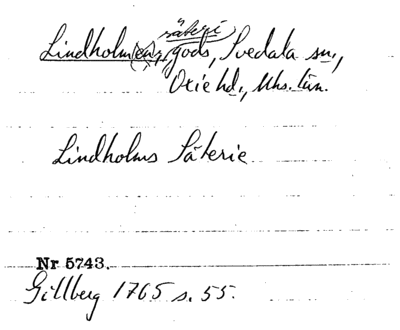 säteri
Lindholm(en), gods, Svedala sn.,
Oxie hd., Mhs. län.
Lindholms Säterie
Nr 5743.
Gillberg 1765 s. 55.